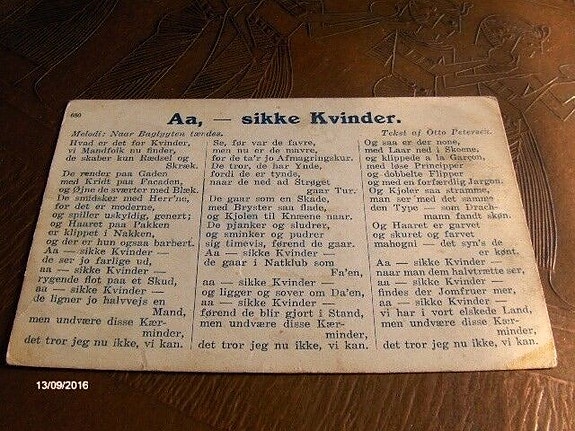 680
Aa, — sikke Kvinder.
Melodi: Naar Baglygten tændes.
Tekst af Otto Petersen.
Hvad er det for Kvinder,
vi Mandfolk nu finder,
de skaber kun Rædsel og
Skræk.
De render paa Gaden
med Kridt paa Facaden,
og Øjne de sværter med Blæk.
De smidsker med Herr'ne,
for det er moderne,
og spiller uskyldig, genert;
og Haaret paa Pakken
er klippet i Nakken,
og der er hun ogsaa barbert.
Aa — sikke Kvinder —
de ser jo farlige ud,
aa — sikke Kvinder —
rygende flot paa et Skud,
aa — sikke Kvinder —
de ligner jo halvvejs en
Mand,
men undvære disse Kær-
minder,
det tror jeg nu ikke, vi kan.
Se, før var de favre,
men nu er de mavre,
for de ta'r jo Afmagringskur.
De tror, de har Ynde,
fordi de er tynde,
naar de ned ad Strøget
gaar Tur.
De gaar som en Skade,
med Bryster saa flade,
og Kjolen til Knæene naar.
De pjanker og sludrer,
og sminker og pudrer
sig timevis, førend de gaar.
Aa — sikke Kvinder —
de gaar i Natklub som
Fa'en,
aa — sikke Kvinder —
og ligger og sover om Da'en,
aa — sikke Kvinder —
førend de blir gjort i Stand,
men undvære disse Kær-
minder,
det tror jeg nu ikke, vi kan.
Og saa er der none,
med Laar ned i Skoene,
og klippede a la Garçon,
med løse Principper
og dobbelte Flipper
og med en forfærdlig Jargon.
Og Kjoler saa stramme,
man ser med det samme
den Type — som Drach-
mann fandt skøn.
Og Haaret er garvet
og skuret og farvet
mahogni — det syn's de
er kønt.
Aa — sikke Kvinder —
naar man dem halvtrætte ser,
aa — sikke Kvinder —
findes der Jomfruer mer,
aa — sikke Kvinder —
vi har i vort elskede Land,
men undvære disse Kær-
minder,
det tror jeg nu ikke, vi kan.
13/09/2016